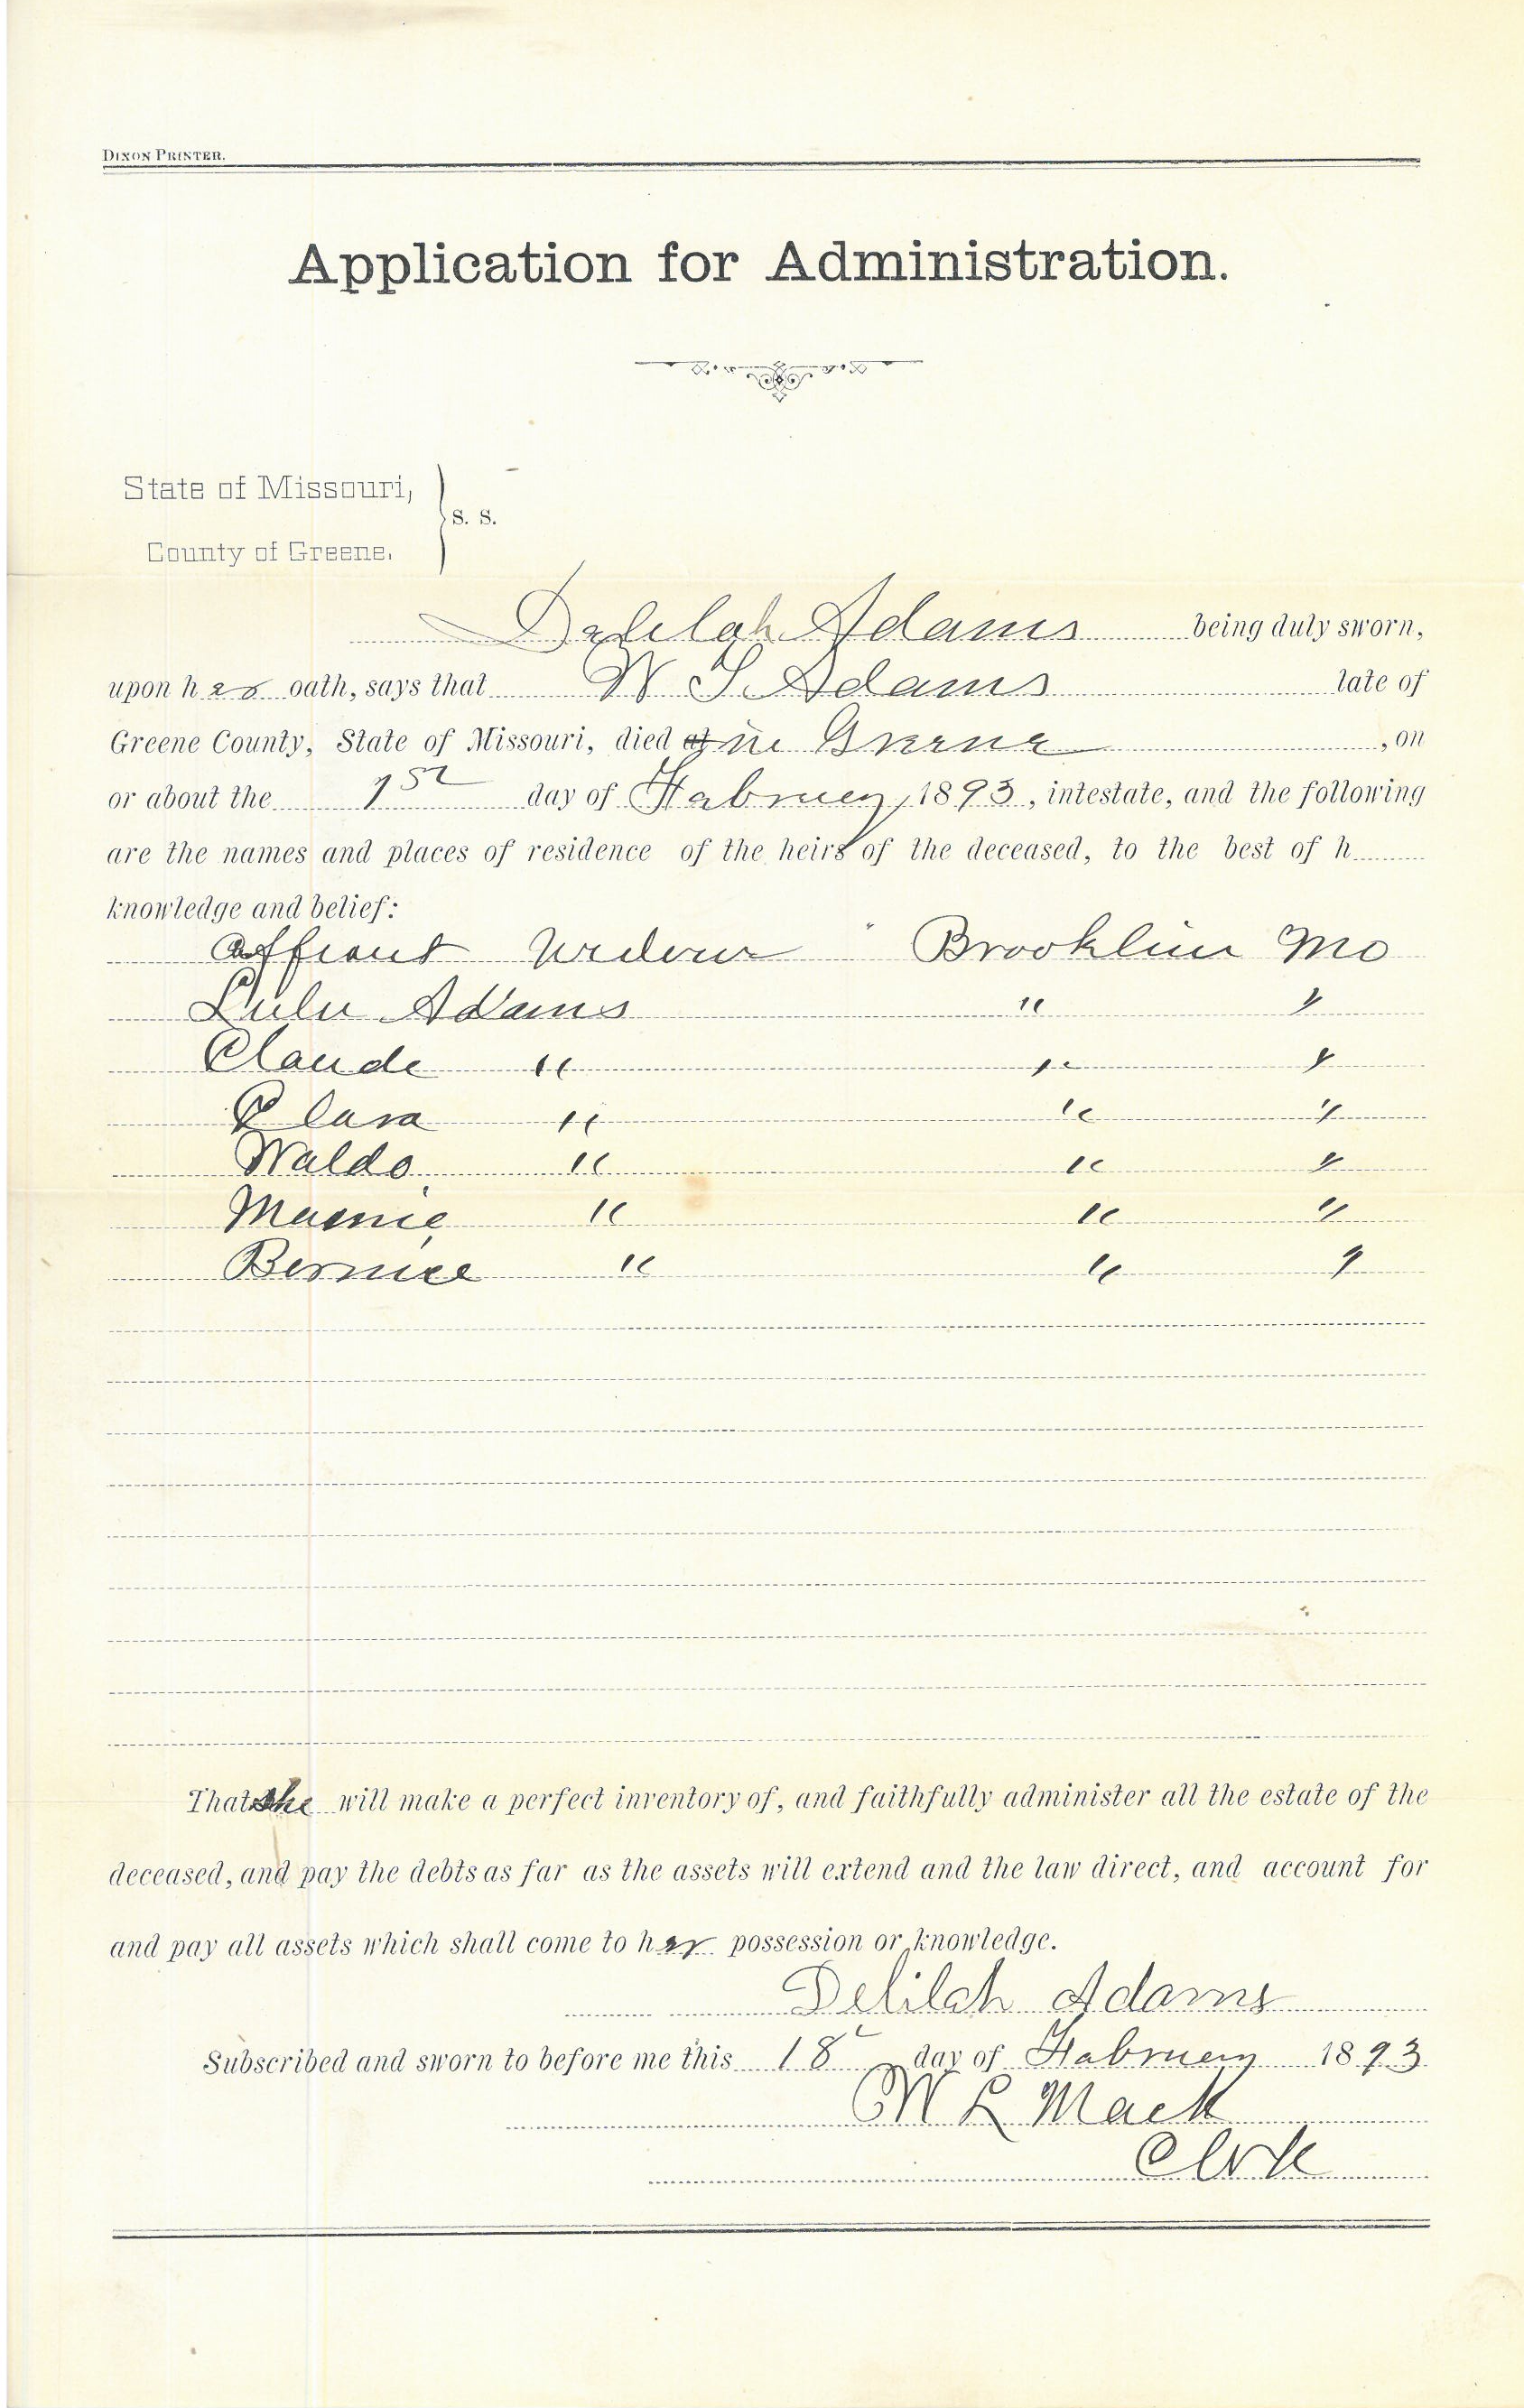 DIXON PRINTER.
Application for Administration.
State of Missouri,
S. S.
County of Greene.
Delilah Adams being duly sworn,
upon her oath, says that W S Adams late of
Greene County, State of Missouri, died at in Greene, on
or about the 1st day of February, 1893, intestate, and the following
are the names and places of residence of the heirs of the deceased, to the best of h
knowledge and belief:
Affiant Widow " Brooklin Mo
Lulu Adams " "
Claude " " "
Clara " " "
Waldo " " "
Mamie " " "
Bernice " " "
That she will make a perfect inventory of, and faithfully administer all the estate of the
deceased, and pay the debts as far as the assets will extend and the law direct, and account for
and pay all assets which shall come to her possession or knowledge.
Delilah Adams
Subscribed and sworn to before me this 18 day of February 1893
W L Mack
Clerk